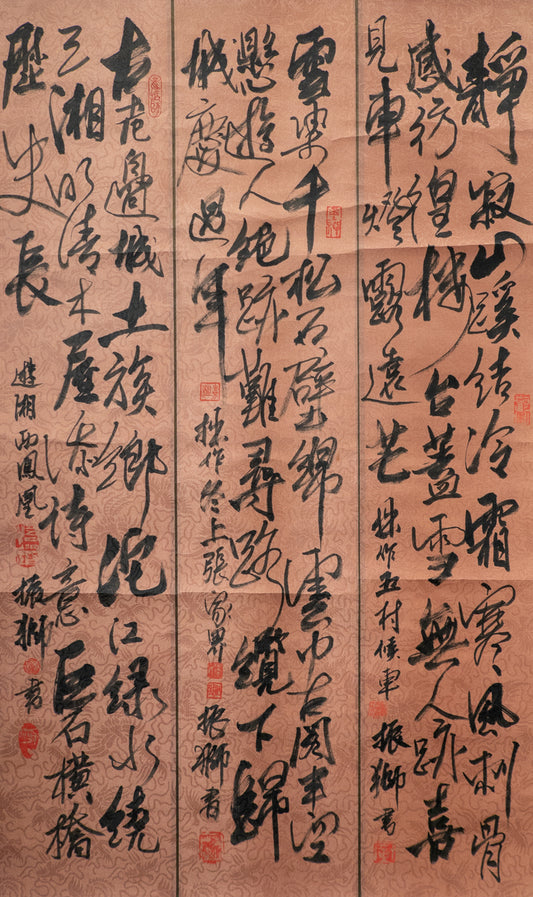 靜寂山蹊結冷霜寒風刺骨
感彷徨樓台蓋雪無人跡喜
見車燈露遠芒 拙作五村候車 振獅書
雪染千松石壁綿雲中古閣半空
懸遊人絕跡難尋路纜下歸
城慶過年 拙作冬上張家界 振獅書
古老邊城土族鄉沱江綠水繞
三湘明清木屋添詩意巨石橫橋
歷史長 遊湘西鳳凰 振獅書